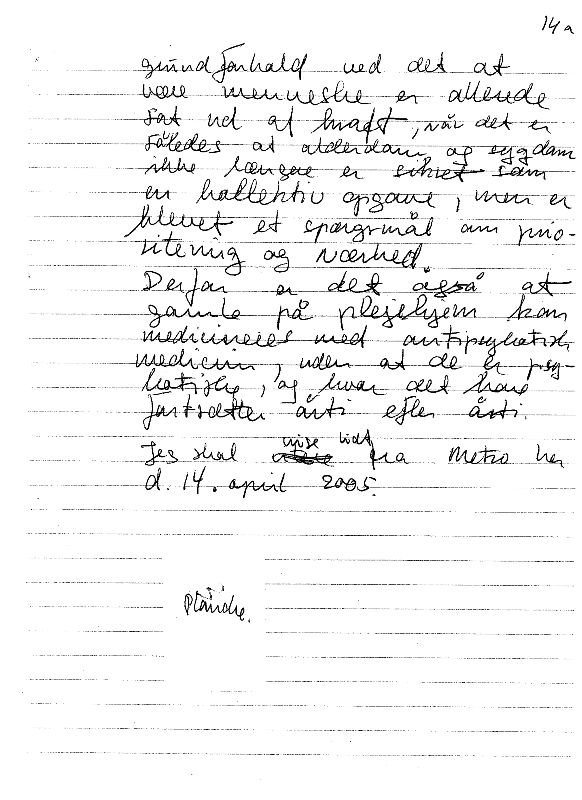 14a
grundforhold ved det at
være menneske er allerede
sat ud af kraft, når det er
således at alderdom og sygdom
ikke længere er sikret som
en kollektiv opgave, men er
blevet et spørgsmål om prio-
ritering og nærhed.
Derfor er det også at
gamle på plejehjem kan
medicineres med antipsykotisk
medicin, uden at de er psy-
kotiske, og hvor det bare
fortsætter årti efter årti.
Jeg skal vise lidt fra Metro her
d. 14. april 2005.
Planche.